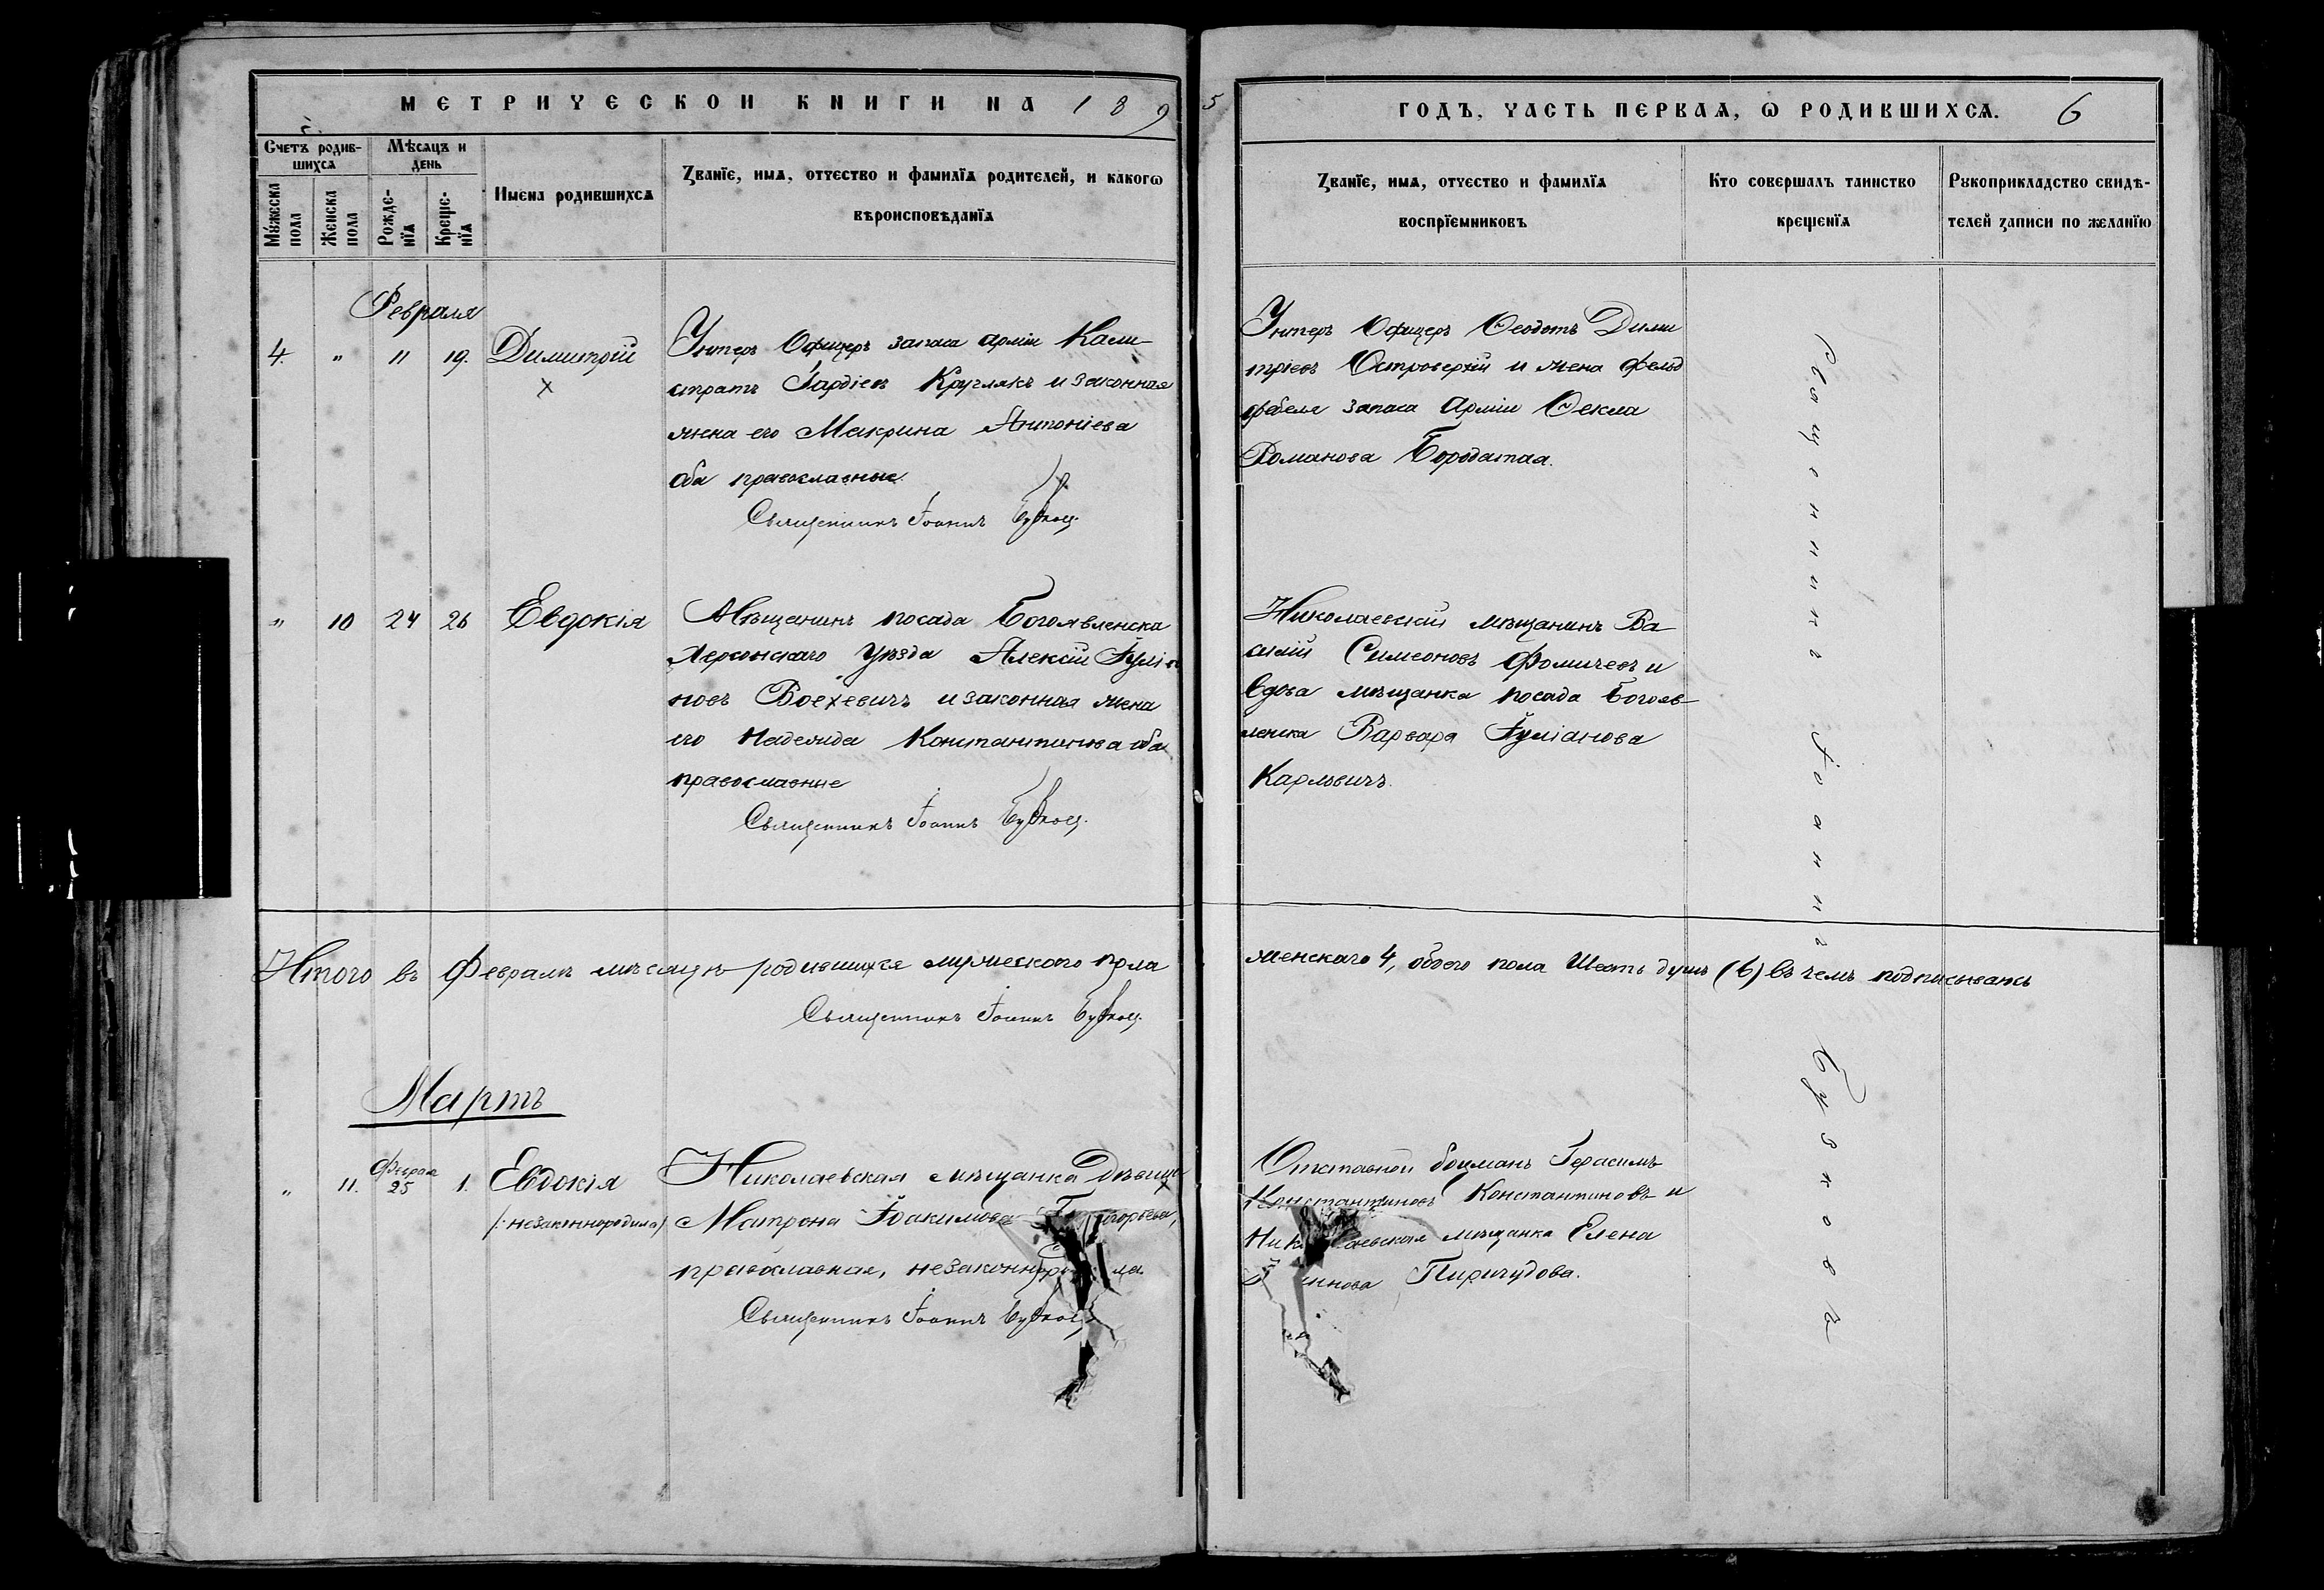 МЕТРИЧЕСКОЙ КНИГИ НА 189
5 ГОДЪ, ЧАСТЬ ПЕРВАЯ, Ѡ РОДИВШИХСЯ. 6
Счетъ родив-
шихся
Мѣсяцъ и
день
Мужеска
пола
Женска
пола
Рожде-
нїя
Креще-
нїя
Имена родившихся
Званїе, имя, отчество и фамилїя родителей, и какогѡ
вѣроисповѣданїя
Званїе, имя, отчество и фамилїя
воспрїемниковъ
Кто совершалъ таинство
крещенїя
Рукоприкладство свидѣ-
телей записи по желанїю
Февраля
4. " 11 19. Димитрій
Унтеръ Офицеръ запаса арміи Кали-
стратъ Гордіевъ Круглякъ и законная
жена его Макрина Антоніева
оба православные.
Священникъ Іоаннъ
Унтеръ Офицеръ Ѳеодотъ Дими
тріевъ Островерхій и жена фельд
фебеля запаса Арміи Ѳекла
Романова Бородатая.
" 10 24 26 Евдокія
Мѣщанинъ посада Богоявленска
Херсонскаго Уѣзда Алексій Іулі
новъ Воехевичъ и законная жена
его Надежда Константинова оба
православные
Священникъ Іоаннъ
Николаевскій мѣщанинъ Ва
силій Симеоновъ Фомичевъ и
вдова мѣщанка посада Богояв-
ленска Варвара Іуліанова
Карлевичъ.
Итого въ Февралѣ мѣсяцѣ родившихся мужескаго пола
женскаго 4, обоего пола Шесть душъ (6) въ чемъ подписываюсь
Священникъ Іоаннъ
Мартъ
" 11. Февраля 25 1. Евдокія
(:незаконнородила)
Николаевская мѣщанка Дѣвица
Матрона Іоакимова
православная,
Священникъ Іоаннъ
Отставной боцманъ Герасимъ
Константиновъ Константиновъ и
мѣщанка Елена
Пиричудова.
Священникъ Іоаннъ